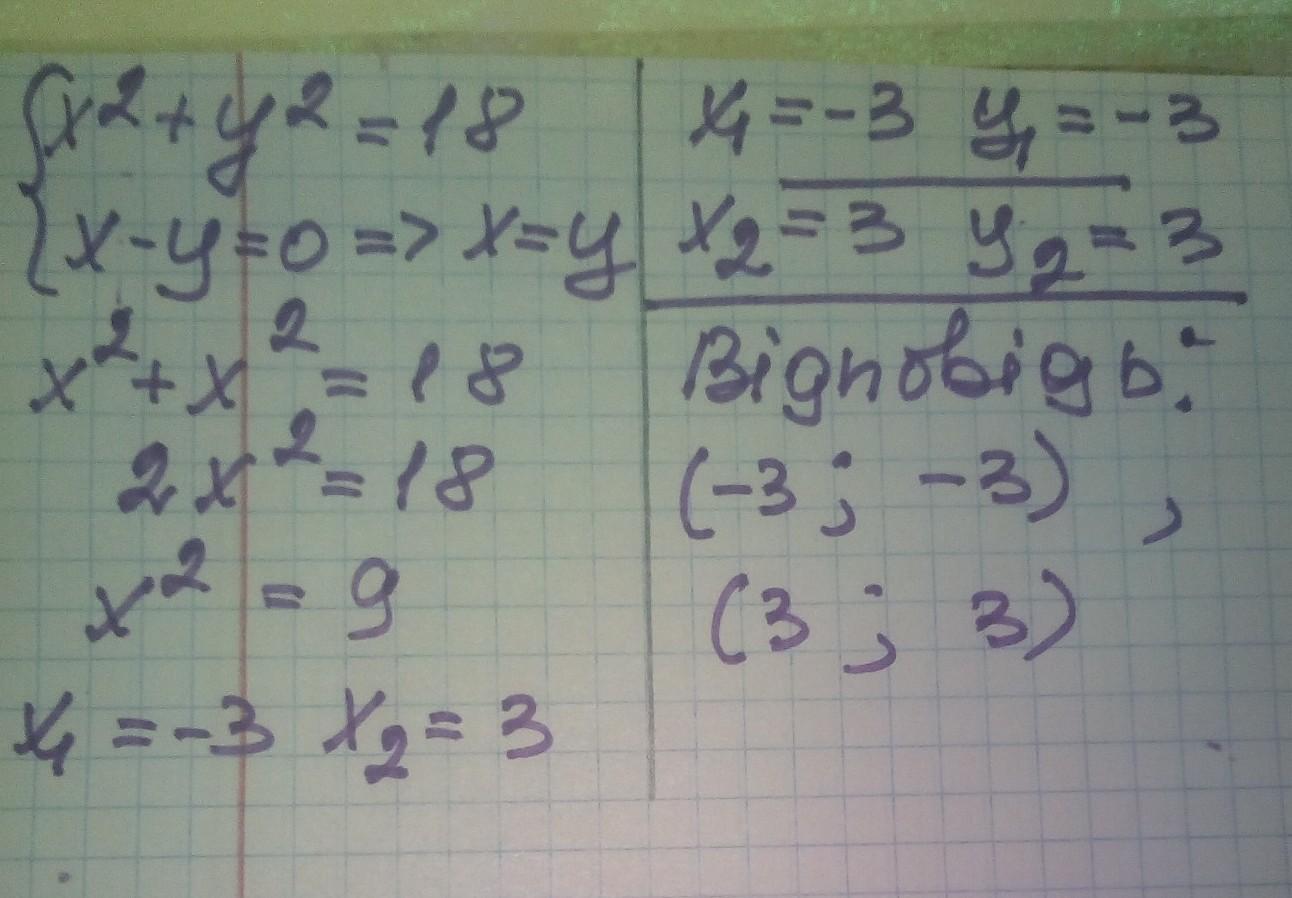 {x²+y²=18
x-y=0 => x=y
x²+x²=18
2x²=18
x²=9
x₁=-3 x₂=3
x₁=-3 y₁=-3
x₂=3 y₂=3
Відповідь:
(-3; -3) ,
(3; 3)